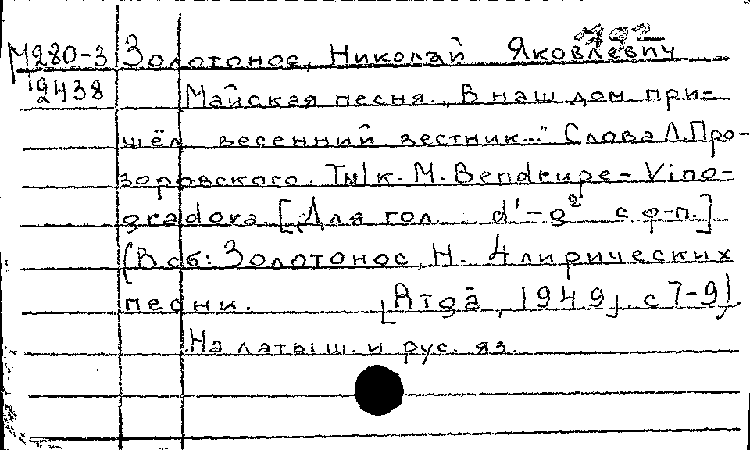 М280-3 Золотонос, Николай Яковлевич
2438 Майская песня. „В наш дом при-
шёл весенний вестник..." Слова Л. Про-
зоровского. Tulk. M. Bendrupe-Vino-
gradova [Для гол. d¹-g² с ф-п.]
(В сб: Золотонос, Н. 4 лирических
песни. [Rīgā, 1949], с 7-9).
На латыш. и рус. яз.